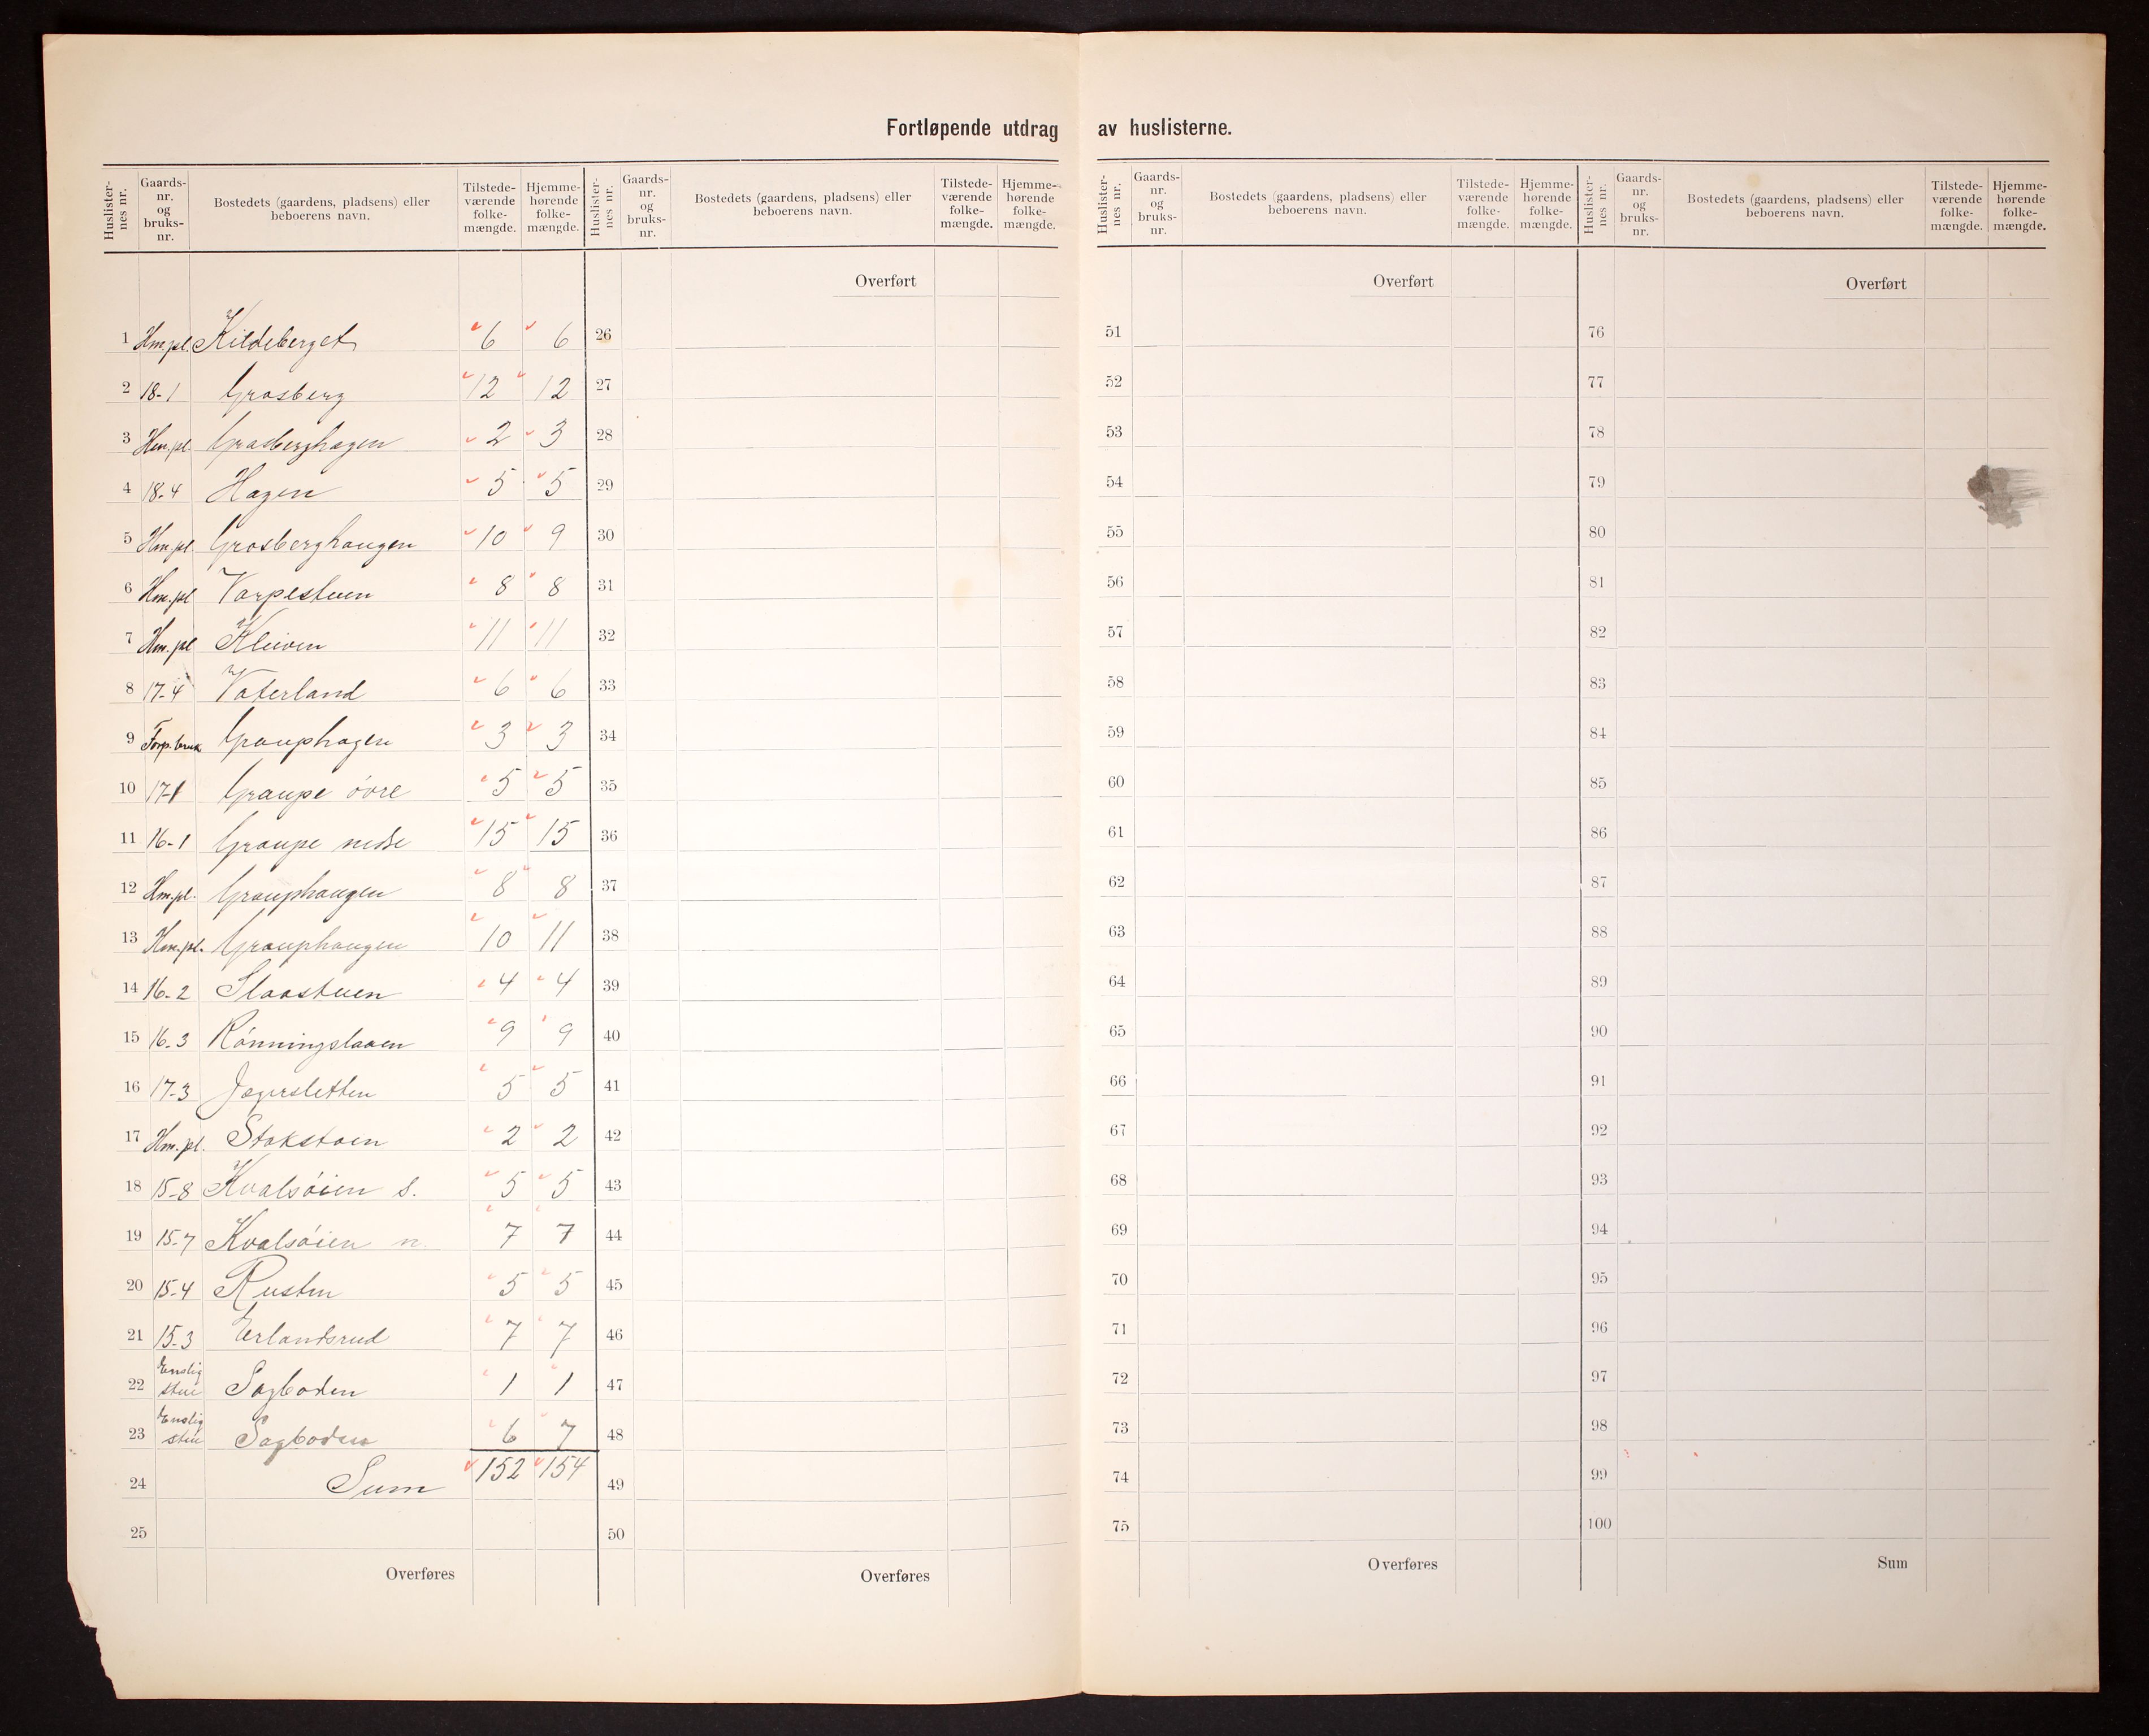 Fortløpende utdrag av huslisterne.
Huslister- nes nr. | Gaards- nr. og bruks- nr. | Bostedets (gaardens, pladsens) eller beboerens navn. | Tilstede- værende folke- mængde. | Hjemme- hørende folke- mængde.
1 Hm.pl. Kildeberget 6 6
2 18-1 Grosberg 12 12
3 Hm.pl. Grosberghagen 2 3
4 18.4 Hagen 5 5
5 Hm.pl. Grosberghaugen 10 9
6 Hm.pl Vorpestuen 8 8
7 Hm.pl Kleiven 11 11
8 17-4 Vaterland 6 6
9 Forp.bruk Grauphagen 3 3
10 17-1 Graupe óvre 5 5
11 16-1 Graupe nedre 15 15
12 Hm.pl. Grauphaugen 8 8
13 Hm.pl. Grauphaugen 10 11
14 16-2 Slaastuen 4 4
15 16-3 Rónningslaaen 9 9
16 17-3 Jægersletten 5 5
17 Hm.pl. Stokstoen 2 2
18 15-8 Kvalsóien s. 5 5
19 15-7 Kvalsóien n. 7 7
20 15-4 Rusten 5 5
21 15-3 Erlandsrud 7 7
22 Enslig stue Sagboden 1 1
23 Enslig stue Sagboden 6 7
24 Sum 152 154
25
Overføres
Huslister- nes nr. | Gaards- nr. og bruks- nr. | Bostedets (gaardens, pladsens) eller beboerens navn. | Tilstede- værende folke- mængde. | Hjemme- hørende folke- mængde.
Overført
26
27
28
29
30
31
32
33
34
35
36
37
38
39
40
41
42
43
44
45
46
47
48
49
50
Overføres
Huslister- nes nr. | Gaards- nr. og bruks- nr. | Bostedets (gaardens, pladsens) eller beboerens navn. | Tilstede- værende folke- mængde. | Hjemme- hørende folke- mængde.
Overført
51
52
53
54
55
56
57
58
59
60
61
62
63
64
65
66
67
68
69
70
71
72
73
74
75
Overføres
Huslister- nes nr. | Gaards- nr. og bruks- nr. | Bostedets (gaardens, pladsens) eller beboerens navn. | Tilstede- værende folke- mængde. | Hjemme- hørende folke- mængde.
Overført
76
77
78
79
80
81
82
83
84
85
86
87
88
89
90
91
92
93
94
95
96
97
98
99
100
Sum